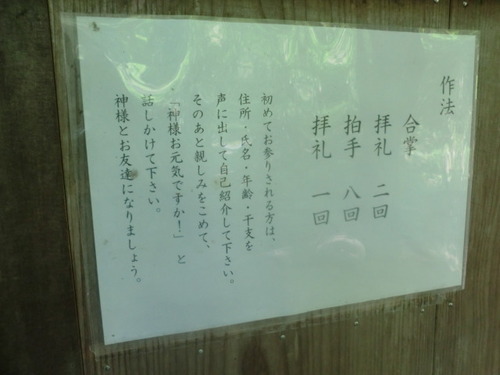 作法
合掌
拝礼 二回
拍手 八回
拝礼 一回
初めてお参りされる方は、
住所・氏名・年齢・干支を
声に出して自己紹介して下さい。
そのあと親しみをこめて、
「神様お元気ですか!」と
話しかけて下さい。
神様とお友達になりましょう。